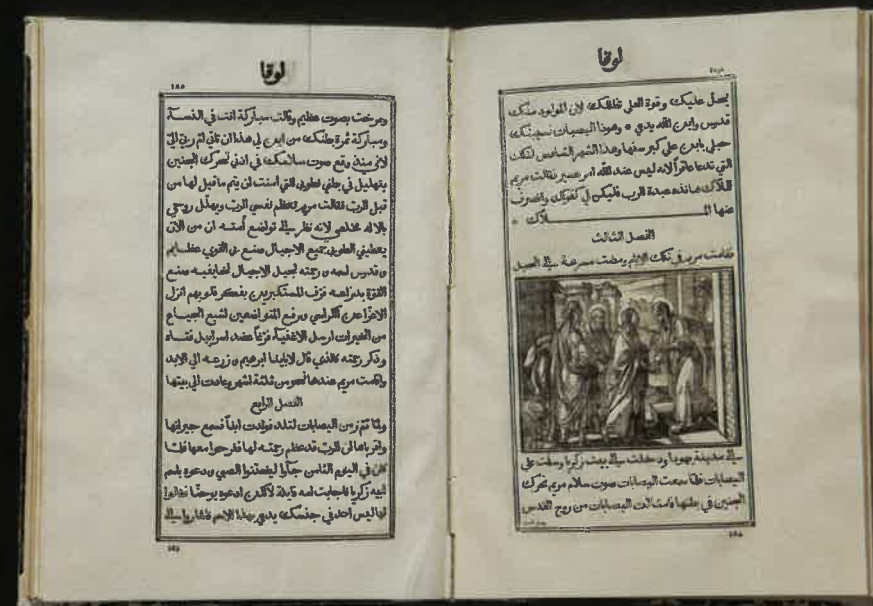 لوقا
يحل عليك وقوة العلي تظللك لان المولود منك
قدوس وابن الله يدعي * وهوذا اليصبات نسيبتك
حبلي بابن علي كبر سنها وهذا الشهر السادس لتلك
التي تدعا عاقراً لانه ليس عند الله امر عسير فقالت مريم
للملاك هانذه عبدة الرب فليكن لي كقولك وانصرف
عنها الملاك *
الفصل الثالث
فقامت مريم في تلك الايام ومضت مسرعة الي الجبل
الي مدينة يهودا ودخلت الي بيت زكريا وسلمت علي
اليصبات فلما سمعت اليصبات صوت سلام مريم تحرك
الجنين في بطنها فامتلات اليصبات من روح القدس
لوقا
وصرخت بصوت عظيم وقالت مباركة انت في النسآ
ومباركة ثمرة بطنك من اين لي هذا ان تاتي ام ربي الي
لاني منذ وقع صوت سلامك في اذني تحرك الجنين
بتهليل في بطني فطوبي للتي امنت ان يتم ما قيل لها من
قبل الرب فقالت مريم تعظم نفسي الرب ويهلل روحي
بالاله مخلصي لانه نظر الي تواضع أمته ان من الان
يعطيني الطوبي جميع الاجيال صنع بي القوي عظايم
وقدوس اسمه ورحمته لجيل الاجيال لخايفيه صنع
القوة بذراعه فرق المستكبرين بفكر قلوبهم انزل
الاعزا عن الكراسي ورفع المتواضعين اشبع الجياع
من الخيرات ارسل الاغنيآ فرغاً عضد اسراييل فتاه
وذكر رحمته كالذي قال لاباينا ابرهيم وزرعه الي الابد
واقامت مريم عندها نحو من ثلثة اشهر وعادت الي بيتها
الفصل الرابع
ولما تم زمن اليصابات لتلد فولدت ابناً فسمع جيرانها
واقرباها ان الرب قد عظم رحمته لها ففرحوا معها فلما
كان في اليوم الثامن جآوا ليختنوا الصبي ودعوه باسم
ابيه زكريا فاجابت امه قايلة لا لكن ادعوه يوحنا فقالوا
لها ليس احد في جنسك يدعي بهذا الاسم فاشاروا الي